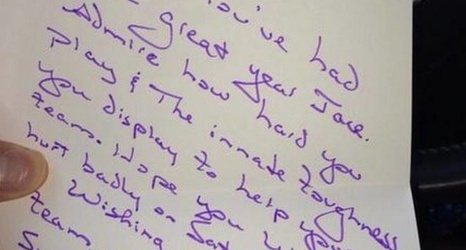 ou've had
great year Jake.
Admire how hard you
play & The innate toughness
you display to help your
team. Hope you
hurt badly on Sat
Wishing
team